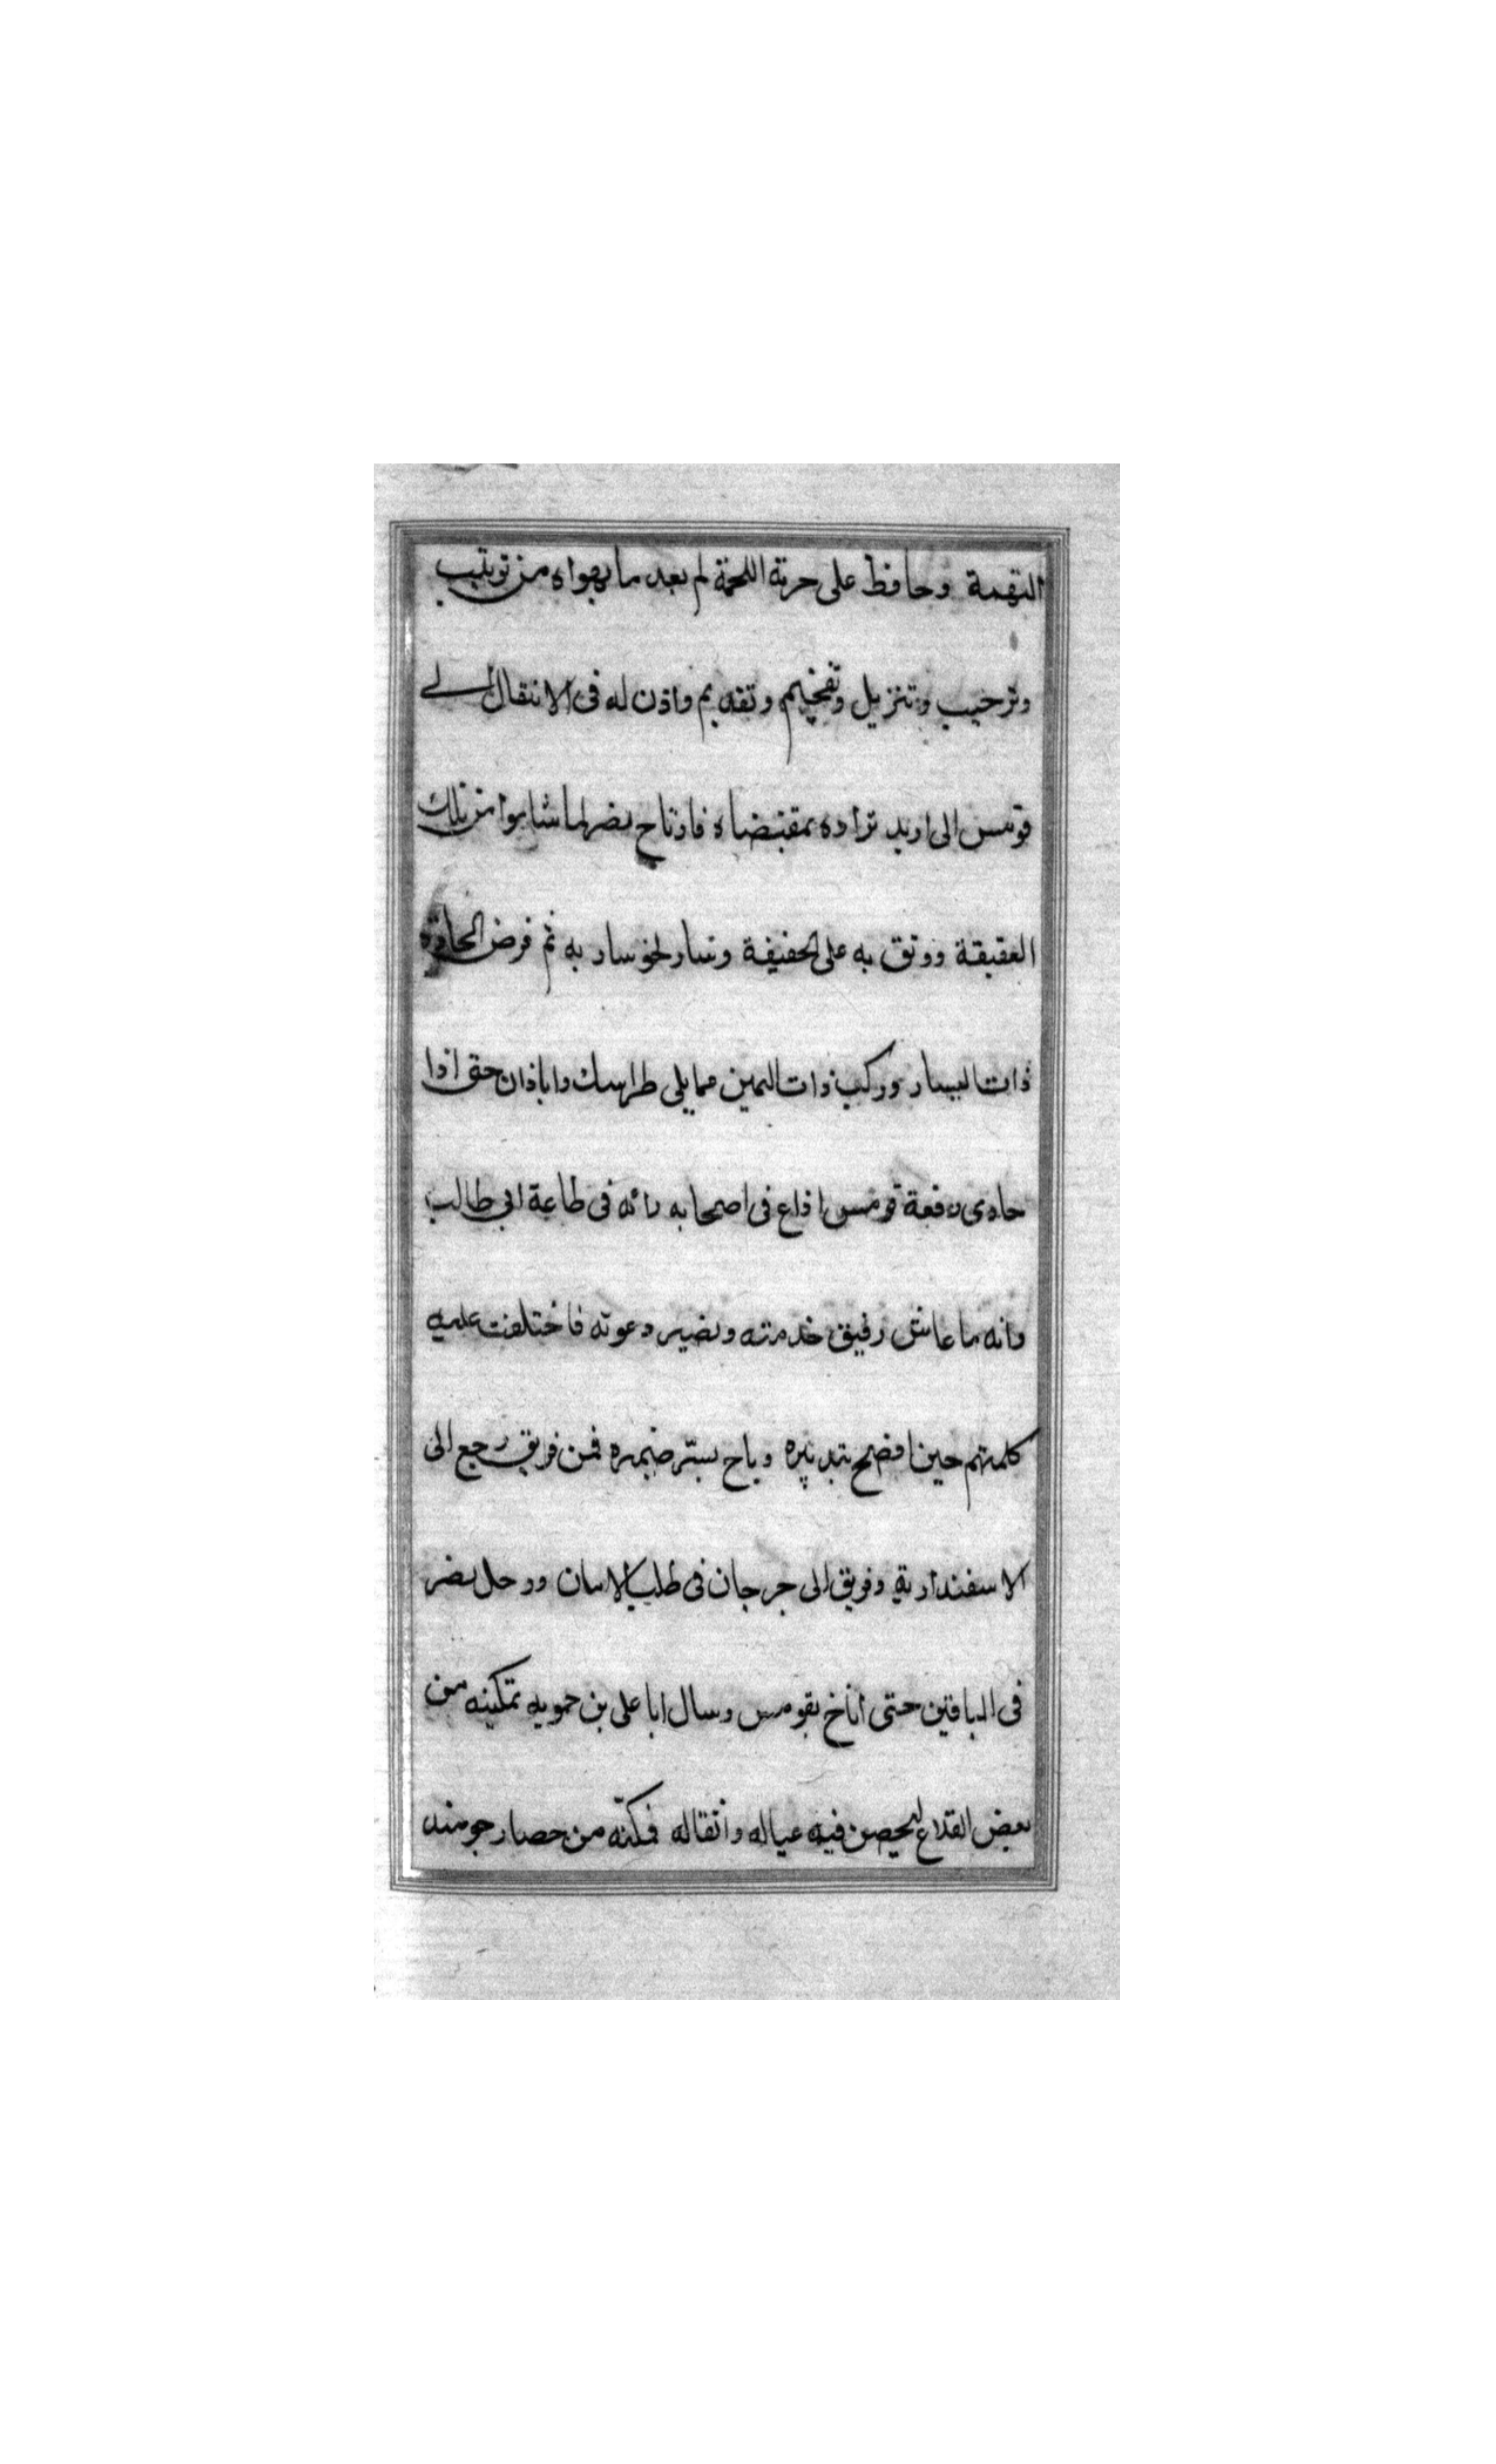 التهمة وحافظ على حرمة اللحمة لم يعد ما يهواه من ترتيب
وترحيب وتنزيل وتفخيم وتقديم واذن له فى الانتقال الى
قومس الى اريد تراده بمقتضاه فارتاح نصر لما شاموا من تلك
العقيقة ووثق به على الحقيقة وسار نحو سار به ثم فرض الجادة
ذات اليسار وركب ذات اليمين مما يلى طراسك واباذان حتى اذا
حاذى رقعة قومس اذاع فى اصحابه رائه فى طاعة ابى طالب
وانه ما عاش رفيق خدمته ونصير دعوته فاختلفت عليه
كلمتهم حين افصح بتدبيره وباح بسر ضميره فمن فريق رجع الى
الاسفندارية وفريق الى جرجان فى طلب الامان ورحل نصر
فى الباقين حتى اناخ بقومس وسال ابا على بن حمويه تمكينه من
بعض القلاع ليحصن فيه عياله وأثقاله فمكنه من حصار جومند